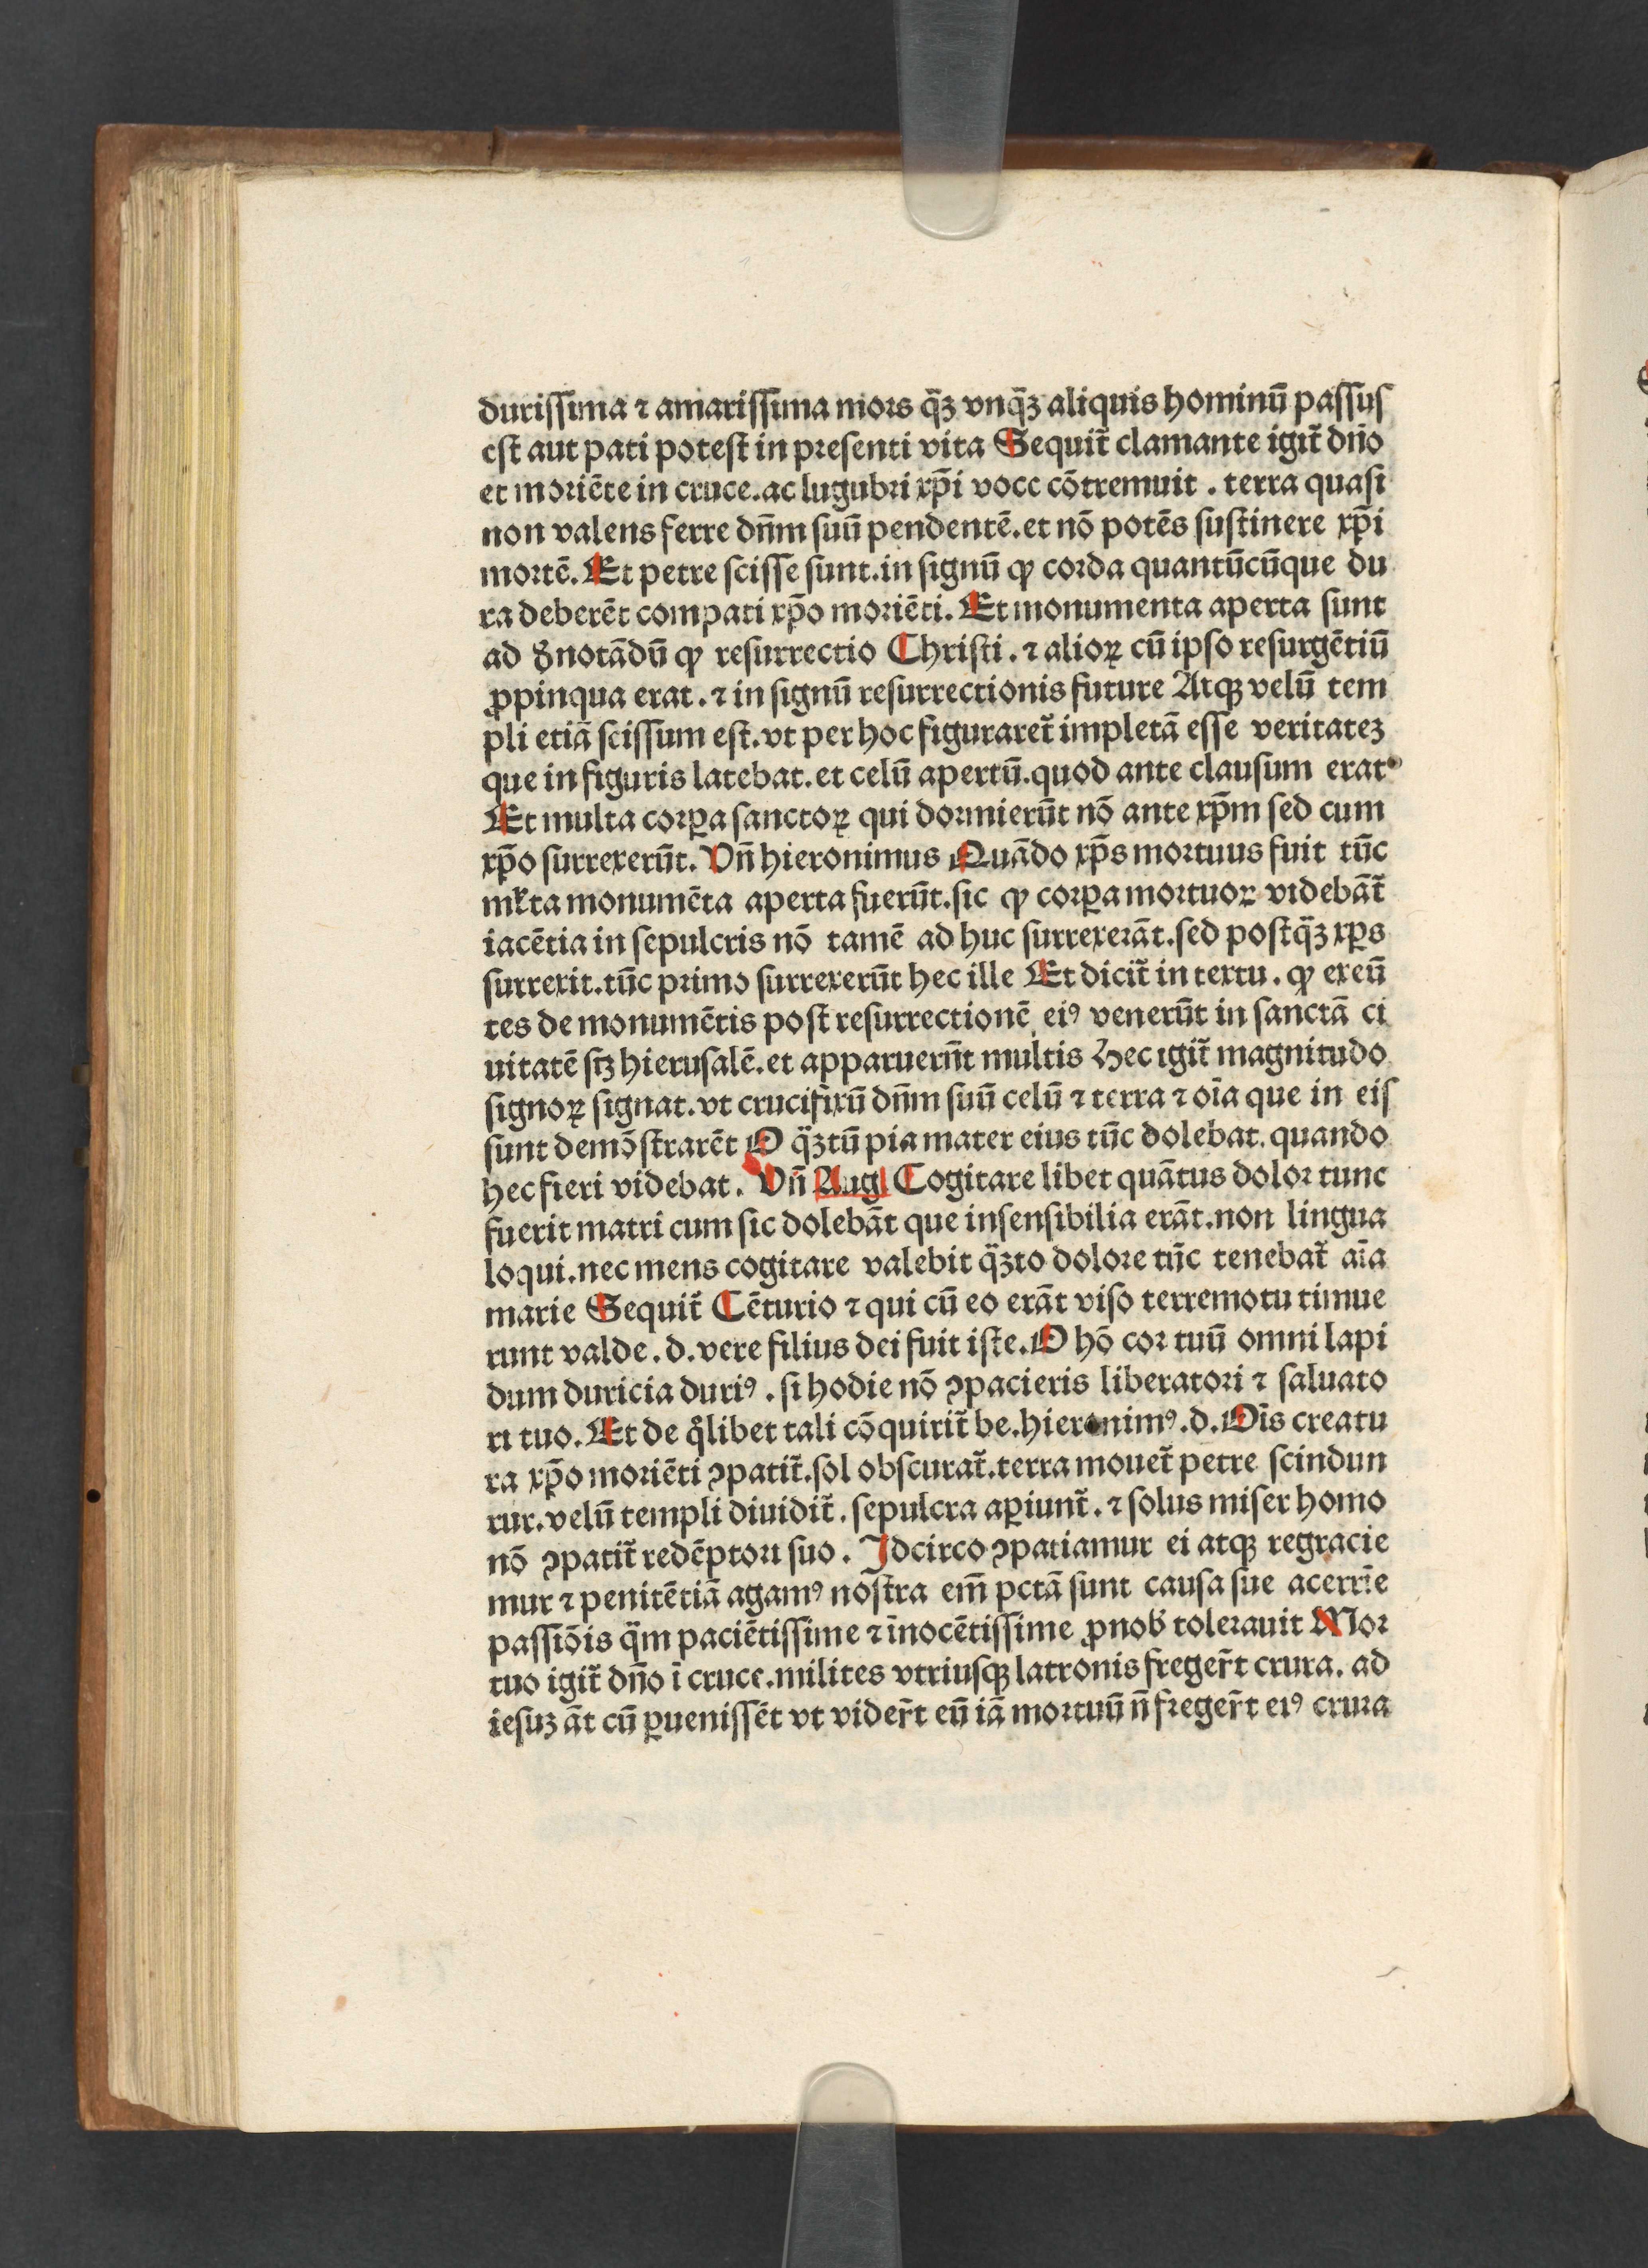 duriſſima ⁊ amariſſima mors q̄ꝫ vnq̄ꝫ aliquis hominū paſſus
eſt aut pati poteſt in preſenti vita Sequit̄ clamante igit̄ dn̄o
et moriēte in cruce. ac lugubri xp̄i voce cōtremuit . terra quaſi
non valens ferre dn̄m ſuū pendentē. et nō potēs ſuſtinere xp̄i
mortē. Et petre ſciſſe ſunt. in ſignū ꝙ corda quantūcūque du
ra deberēt compati xp̄o moriēti. Et monumenta aperta ſunt
ad ꝺ̄notādū ꝙ reſurrectio Chriſti . ⁊ alioꝝ cū ipſo reſurgētiū
ꝓpinqua erat . ⁊ in ſignū reſurrectionis future Atqꝫ velū tem
pli etiā ſciſſum eſt. vt per hoc figuraret̄ impletā eſſe veritateꝫ
que in figuris latebat. et celū apertū. quod ante clauſum erat.
Et multa corꝑa ſanctoꝝ qui dormierūt nō ante xp̄m ſed cum
xp̄o ſurrexerūt. Vn̄ hieronimus Quādo xp̄s mortuus fuit tūc
ml̄ta monumēta aperta fuerūt. ſic ꝙ corꝑa mortuoꝝ videbāt̄
iacētia in ſepulcris nō tamē ad huc ſurrexerāt. ſed poſtq̄ꝫ xp̄s
ſurrexit. tūc primo ſurrexerūt hec ille Et dicit̄ in textu . ꝙ exeū
tes de monumētis poſt reſurrectionē eiꝰ venerūt in ſanctā ci
uitatē ſꝫ hieruſalē. et apparuerūt multis Hec igit̄ magnitudo
ſignoꝝ ſignat. vt crucifixū dn̄m ſuū celū ⁊ terra ⁊ oīa que in eiſ
ſunt demōſtrarēt O q̄ꝫtū pia mater eius tūc dolebat. quando
hec fieri videbat . Vn̄ Aug Cogitare libet quātus dolor tunc
fuerit matri cum ſic dolebāt que inſenſibilia erāt. non lingua
loqui. nec mens cogitare valebit q̄ꝫto dolore tūc tenebat̄ aīa
marie Sequit̄ Cēturio ⁊ qui cū eo erāt viſo terremotu timue
runt valde . d. vere filius dei fuit iſte. O hō cor tuū omni lapi
dum duricia duriꝰ . ſi hodie nō ꝯpacieris liberatori ⁊ ſaluato
ri tuo. Et de qͥlibet tali cōquirit̄ be. hieronimꝰ .d. Oīs creatu
ra xp̄o moriēti ꝯpatit̄. ſol obſcurat̄. terra mouet̄ petre ſcindun
tur. velū templi diuidit̄ . ſepulcra aꝑiunt̄ . ⁊ ſolus miſer homo
nō ꝯpatit̄ redēptori ſuo . Idcirco ꝯpatiamur ei atqꝫ regracie
mur ⁊ penitētiā agamꝰ noſtra em̄ pctā ſunt cauſa ſue acerrīe
paſſiōis q̄m paciētiſſime ⁊ īnocētiſſime ꝓnob̄ tolerauit Mor
tuo igit̄ dn̄o ī cruce. milites vtriuſqꝫ latronis freger̄t crura. ad
ieſuꝫ āt cū ꝑueniſſēt vt vider̄t eū iā mortuū n̄ freger̄t eiꝰ crura